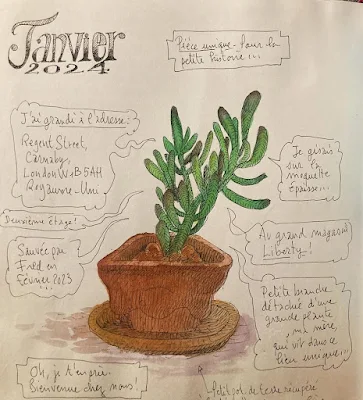 Janvier
2024
Pièce unique - Pour la
petite histoire...
J'ai grandi à l'adresse:
Regent Street,
Carnaby,
London W1B 5AH
Royaume-Uni
Deuxième étage!
Sauvée par
Fred en
Février 2023
Je gisais
sur la
moquette
épaisse...
Au grand magasin
Liberty!
Petite branche
détachée d'une
grande plante
ma mère,
qui vit dans ce
lieu unique...
Oh, je t'en prie.
Bienvenue chez nous!
Petit pot de terre récupéré